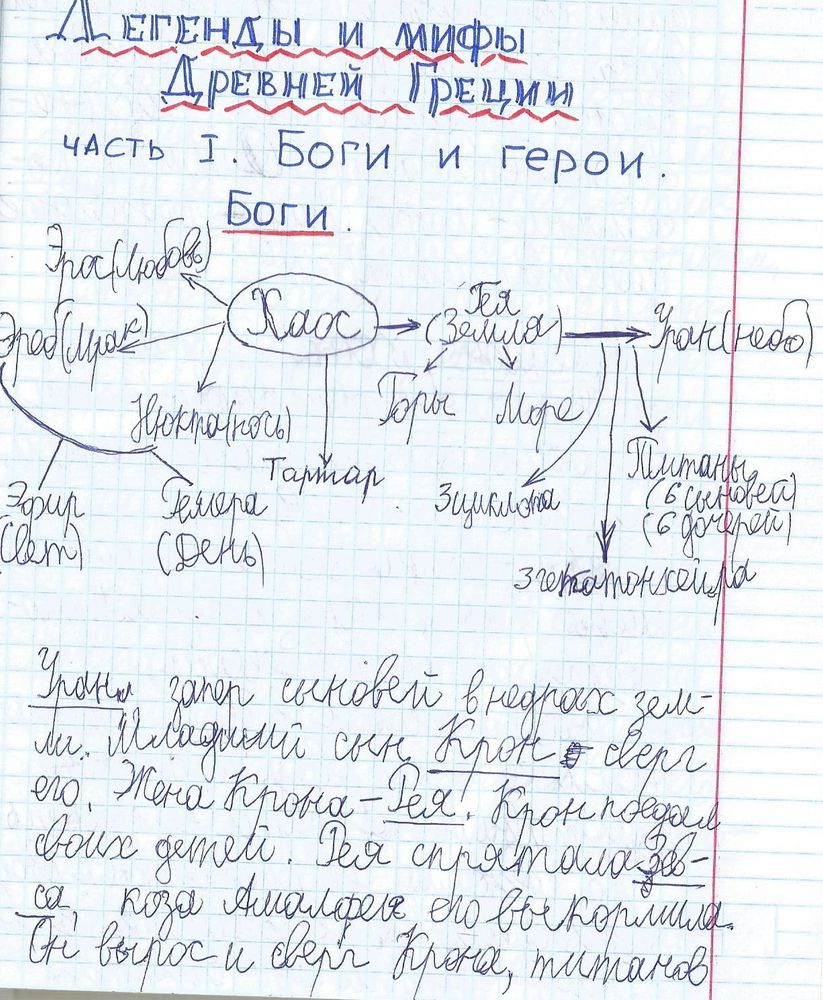 Легенды и мифы
Древней Греции
часть I. Боги и герои.
Боги.
Эрос(Любовь)
Хаос
Гея
(Земля)
Уран(небо)
Эреб(Мрак)
Горы
Море
Нюкта(ночь)
Тартар
Титаны
(6 сыновей)
(6 дочерей)
Эфир
(Свет)
Гемера
(День)
3циклопа
3гекатонхейра
Уран запер сыновей в недрах зем-
ли. Младший сын Крон сверг
его. Жена Крона – Рея. Крон поедал
своих детей. Рея спрятала Зев-
са, коза Амалфея его выкормила.
Он вырос и сверг Крона, титанов